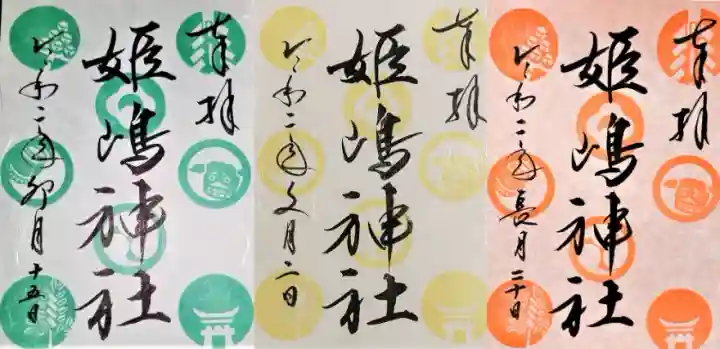 奉拝
姫嶋神社
令和二年卯月十五日
奉拝
姫嶋神社
令和二年文月二日
奉拝
姫嶋神社
令和二年長月二十日